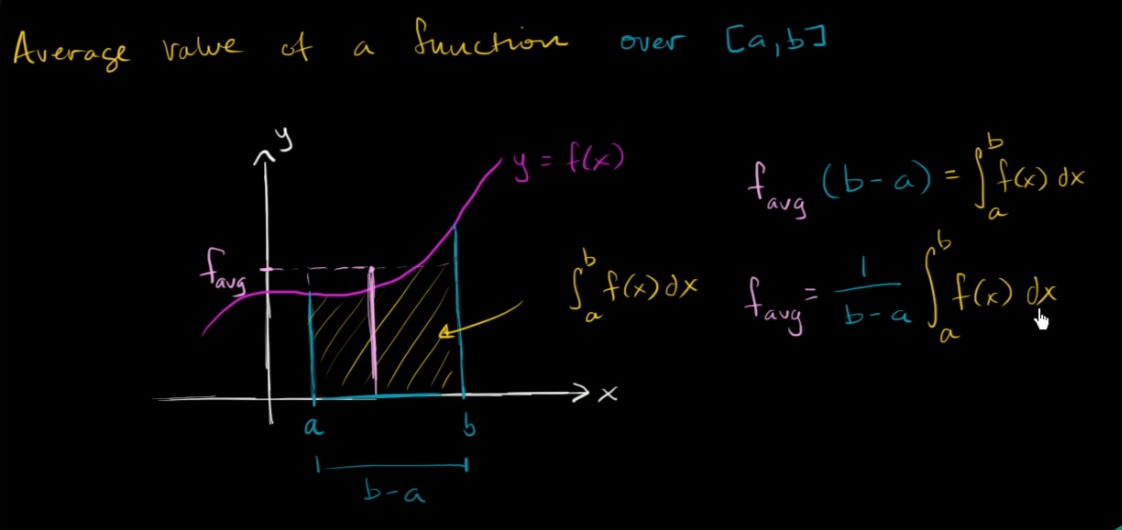 Average value of a function over [a,b]
y
y = f(x)
f_avg (b-a) = ∫_a^b f(x) dx
f_avg
∫_a^b f(x) dx
f_avg = 1/(b-a) ∫_a^b f(x) dx
x
a b
b-a